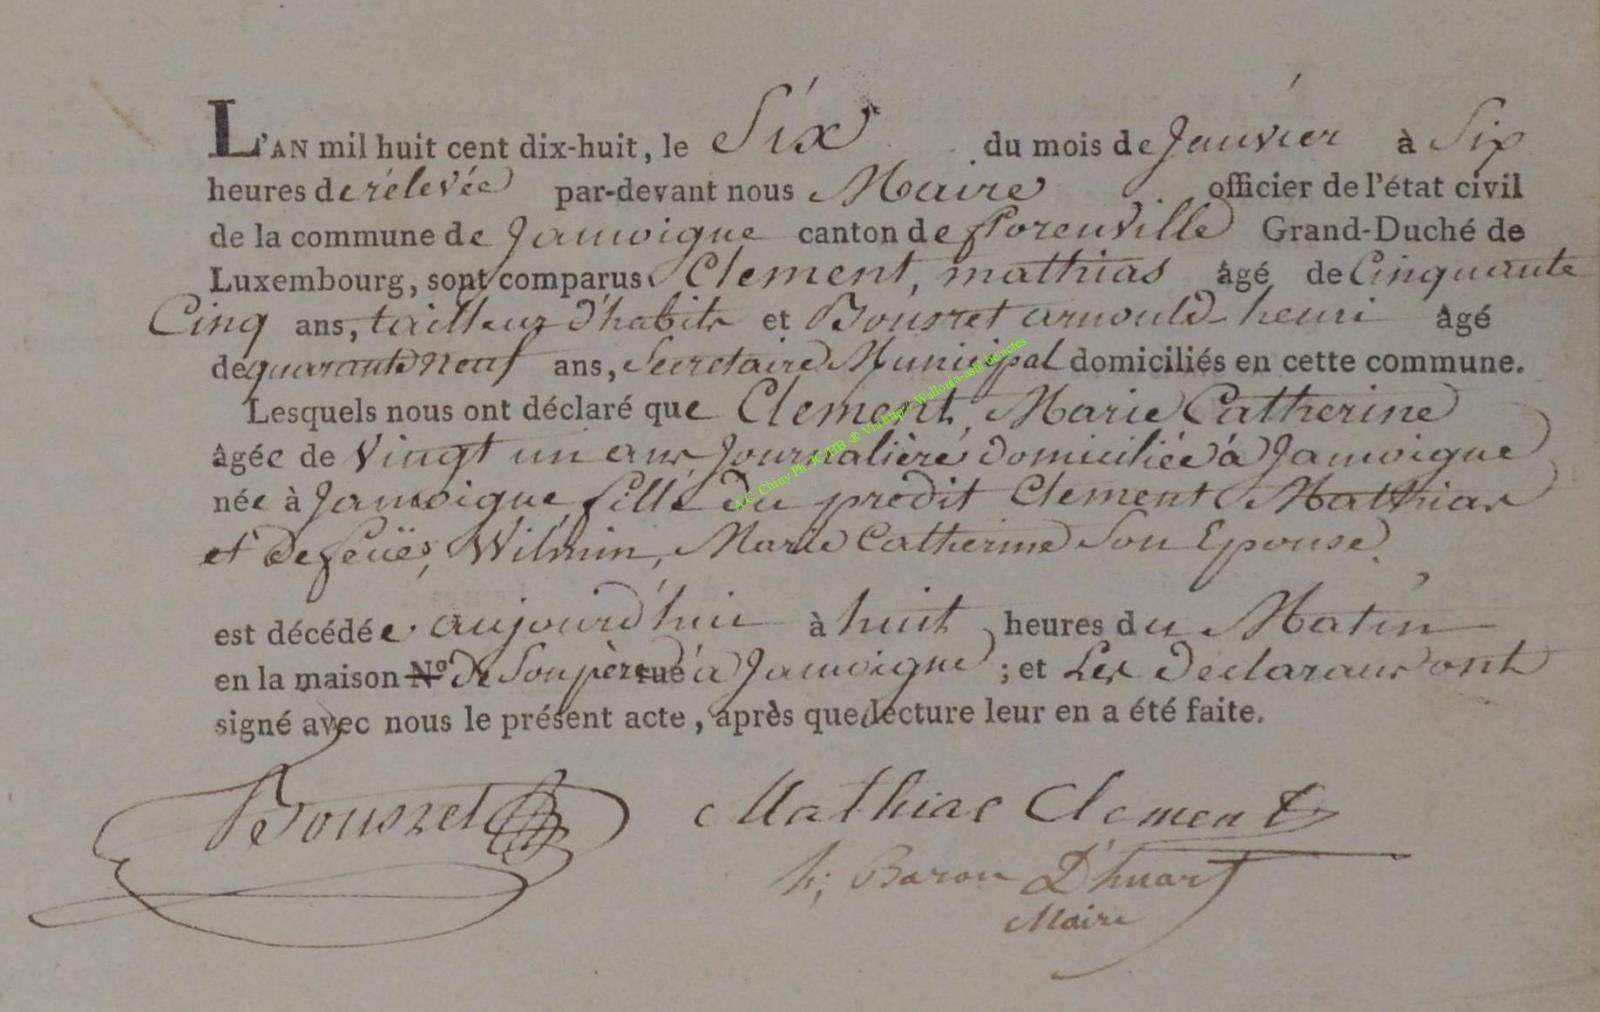 L'AN mil huit cent dix-huit, le Six du mois de Janvier à Six
heures de rélevée par-devant nous Maire officier de l'état civil
de la commune de Jamoigne canton de florenville Grand-Duché de
Luxembourg, sont comparus Clement, mathias âgé de Cinquante
Cinq ans, tailleur d'habits et Bousret arnould-henri âgé
de quarante Neuf ans, Secretaire Municipal domiciliés en cette commune.
Lesquels nous ont déclaré que Clement, Marie Catherine
âgée de Vingt un ans Journaliére domiciliée à Jamoigne
née à Jamoigne fille du prédit Clement Mathias
et defeuës, Wilmin, Marie Catherine Son Epouse.
est décédée aujourd'hui à huit heures du Matin
en la maison N.º de Son père rue à Jamoigne ; et Les déclarans ont
signé avec nous le présent acte, après que lecture leur en a été faite.
Bousret Mathias Clement
h; Baron D'huart
Maire
A.C. Chiny Ph. © Wallonia-asbl